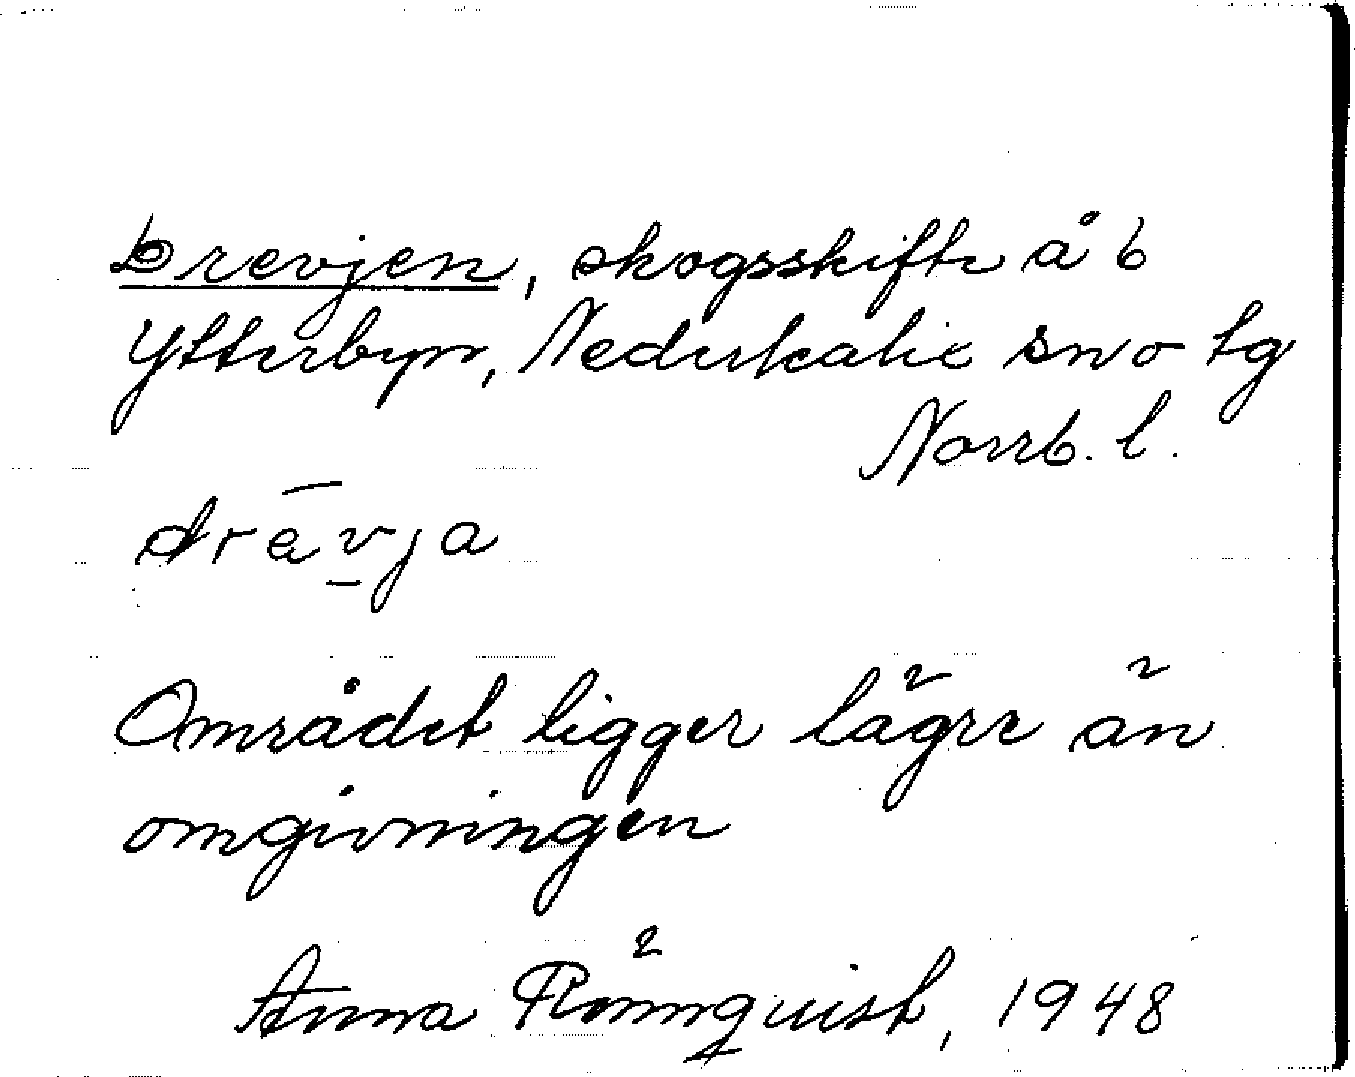 Drevjen, skogsskifte å 6
Ytterbyn, Nederkalix sn o tg
Norrb. l.
drävja
Området ligger lägre än
omgivningen
Anna Rönnquist, 1948